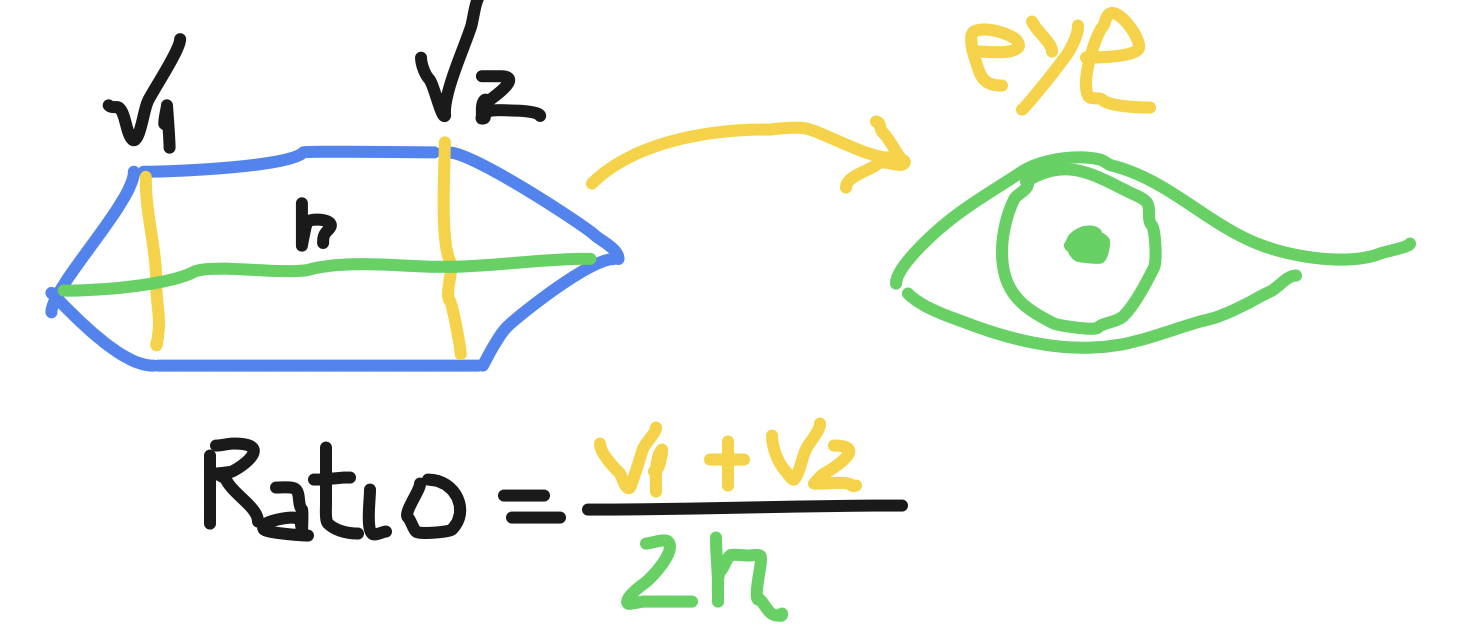 v1
v2
eye
h
Ratio = v1 + v2
2h